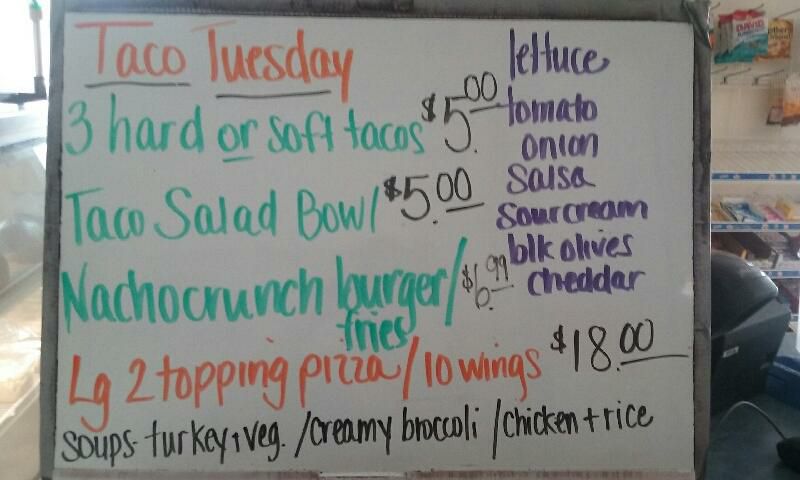 Taco Tuesday
3 hard or soft tacos $5.00
Taco Salad Bowl $5.00
Nachocrunch burger/ $6.99
fries
Lg 2 topping pizza/10 wings $18.00
soups- turkey + veg. /creamy broccoli /chicken + rice
lettuce
tomato
onion
salsa
sour cream
blk olives
cheddar
DAVID